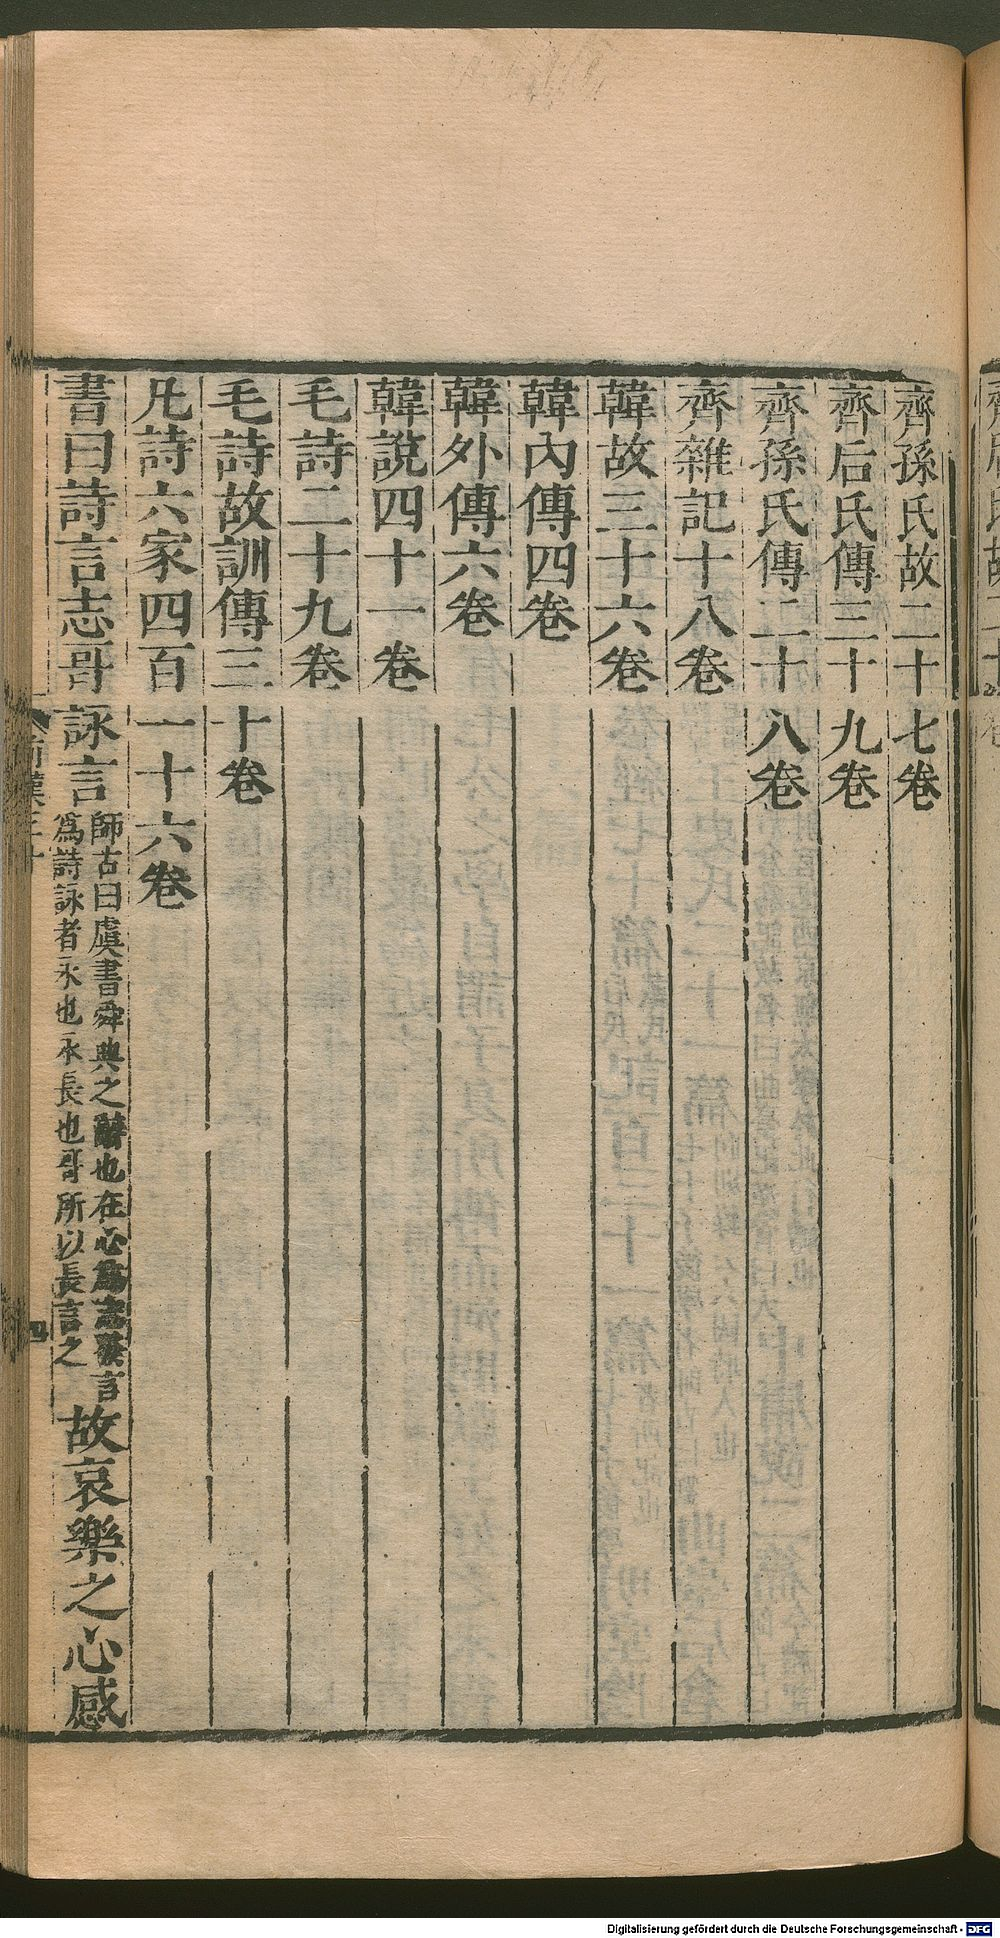 齊孫氏故二十七卷
齊后氏傳三十九卷
齊孫氏傳二十八卷
齊雜記十八卷
韓故三十六卷
韓內傳四卷
韓外傳六卷
韓說四十一卷
毛詩二十九卷
毛詩故訓傳三十卷
凡詩六家四百一十六卷
書曰詩言志哥詠言師古曰虞書舜典之辭也在心爲志發言爲詩詠者永也永長也哥所以長言之故哀樂之心感
前漢三十
四
Digitalisierung gefördert durch die Deutsche Forschungsgemeinschaft - DFG